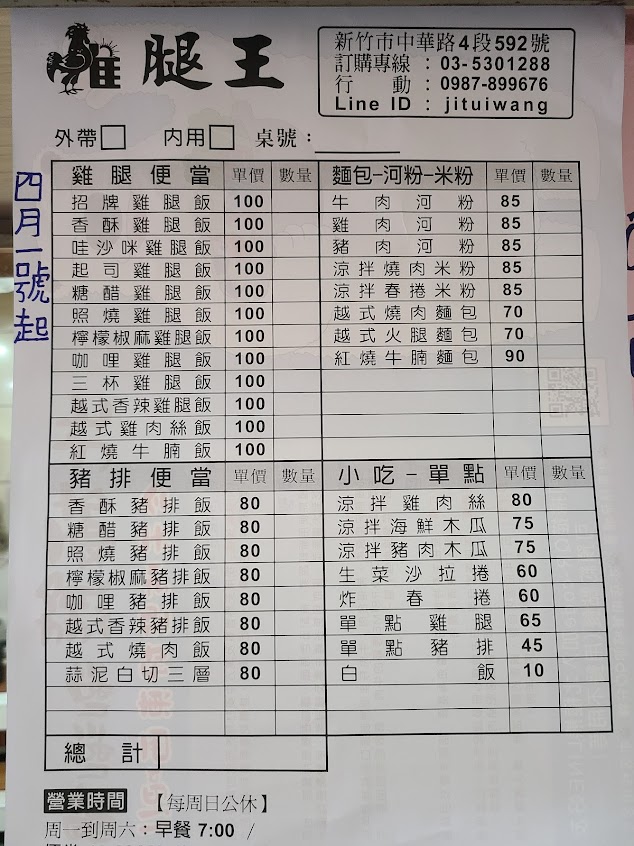 雞腿王
新竹市中華路4段592號
訂購專線：03-5301288
行動：0987-899676
Line ID：jituiwang
外帶□ 内用□ 桌號：
四月一號起
雞腿便當 單價 數量
招牌雞腿飯 100
香酥雞腿飯 100
哇沙咪雞腿飯 100
起司雞腿飯 100
糖醋雞腿飯 100
照燒雞腿飯 100
檸檬椒麻雞腿飯 100
咖哩雞腿飯 100
三杯雞腿飯 100
越式香辣雞腿飯 100
越式雞肉絲飯 100
紅燒牛腩飯 100
麵包-河粉-米粉 單價 數量
牛肉河粉 85
雞肉河粉 85
豬肉河粉 85
涼拌燒肉米粉 85
涼拌春捲米粉 85
越式燒肉麵包 70
越式火腿麵包 70
紅燒牛腩麵包 90
豬排便當 單價 數量
香酥豬排飯 80
糖醋豬排飯 80
照燒豬排飯 80
檸檬椒麻豬排飯 80
咖哩豬排飯 80
越式香辣豬排飯 80
越式燒肉飯 80
蒜泥白切三層 80
小吃-單點 單價 數量
涼拌雞肉絲 80
涼拌海鮮木瓜 75
涼拌豬肉木瓜 75
生菜沙拉捲 60
炸春捲 60
單點雞腿 65
單點豬排 45
白飯 10
總計
營業時間 【每周日公休】
周一到周六：早餐 7:00 /